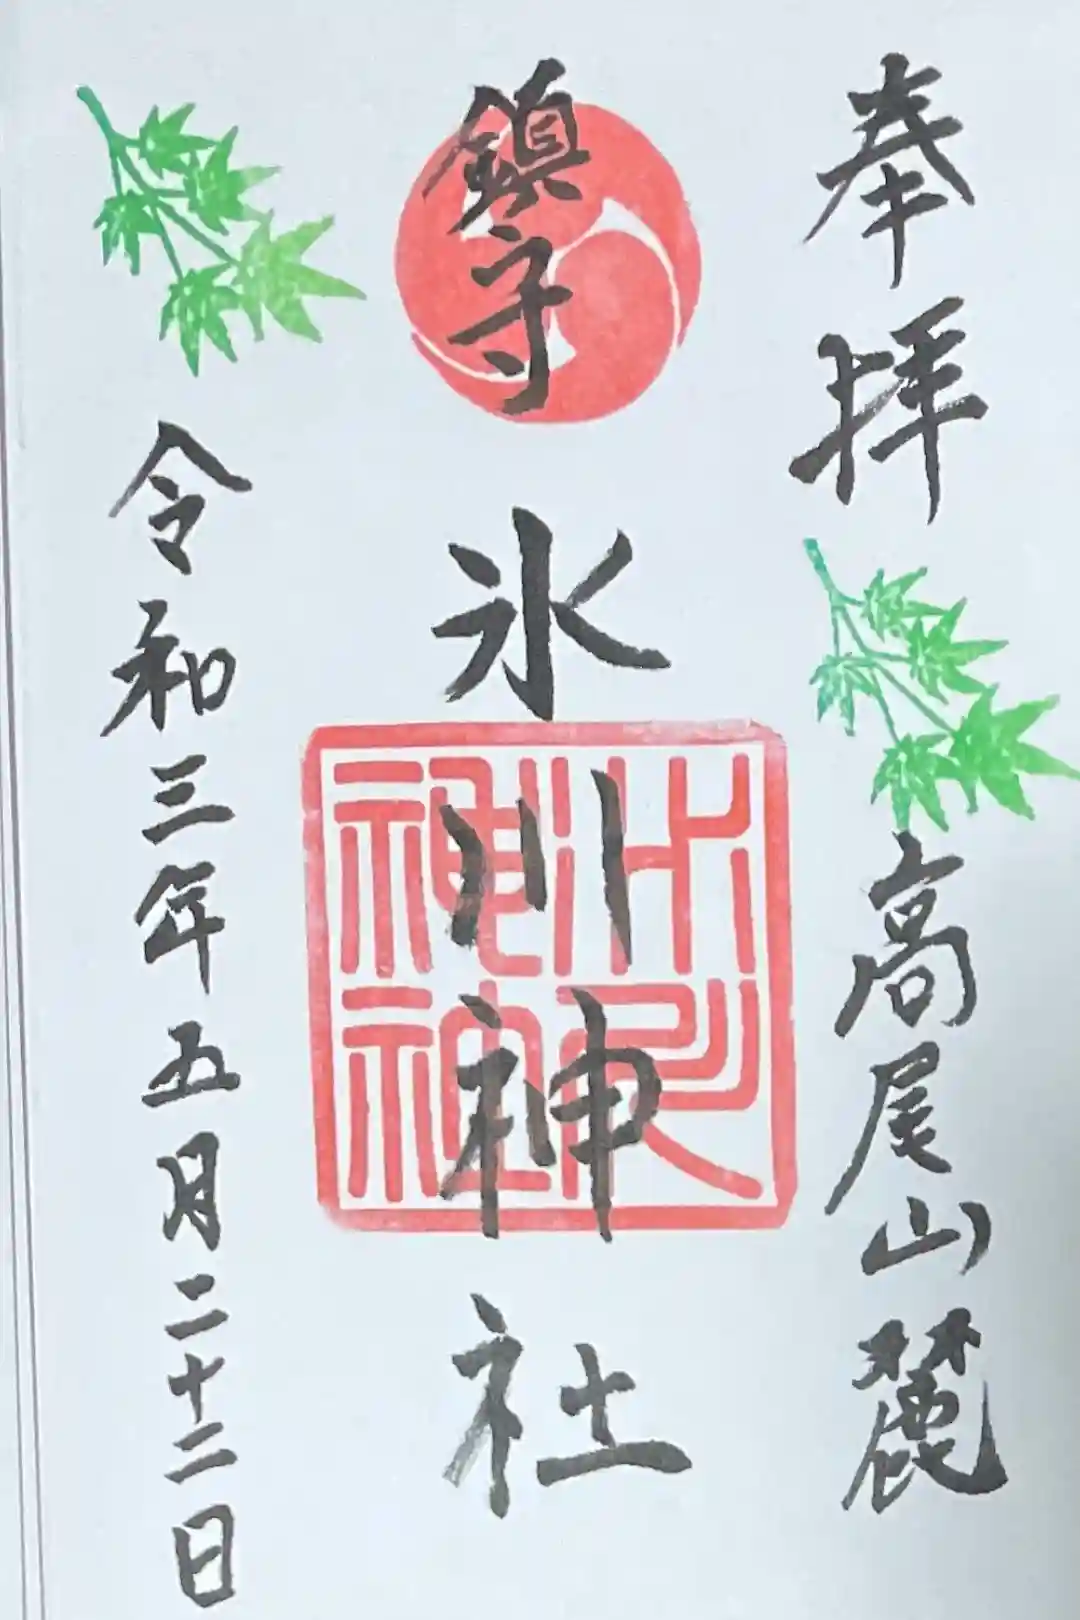 奉拝
高尾山麓
鎮守
氷川神社
氷川神社
令和三年五月二十二日